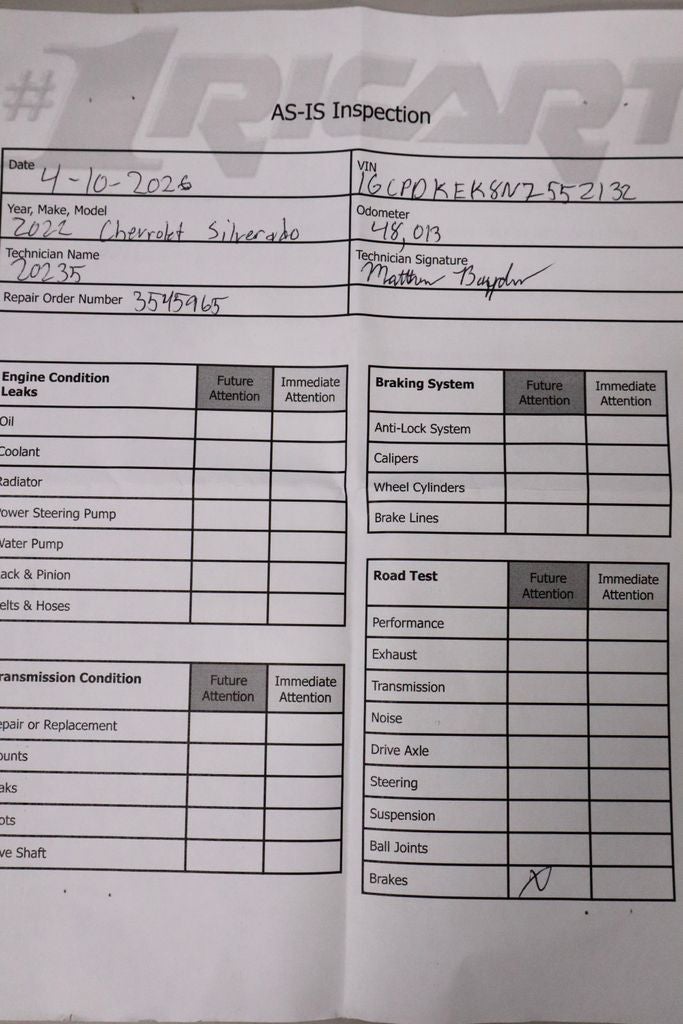 #1 RICART
AS-IS Inspection
Date 4-10-2026
VIN 1GCPDKEK8NZ552132
Year, Make, Model 2022 Chevrolet Silverado
Odometer 48,013
Technician Name 20235
Technician Signature Matthew
Repair Order Number 3545965
Engine Condition Leaks Future Attention Immediate Attention
Oil
Coolant
Radiator
ower Steering Pump
Water Pump
ack & Pinion
elts & Hoses
ransmission Condition Future Attention Immediate Attention
epair or Replacement
ounts
aks
ots
ve Shaft
Braking System Future Attention Immediate Attention
Anti-Lock System
Calipers
Wheel Cylinders
Brake Lines
Road Test Future Attention Immediate Attention
Performance
Exhaust
Transmission
Noise
Drive Axle
Steering
Suspension
Ball Joints
Brakes